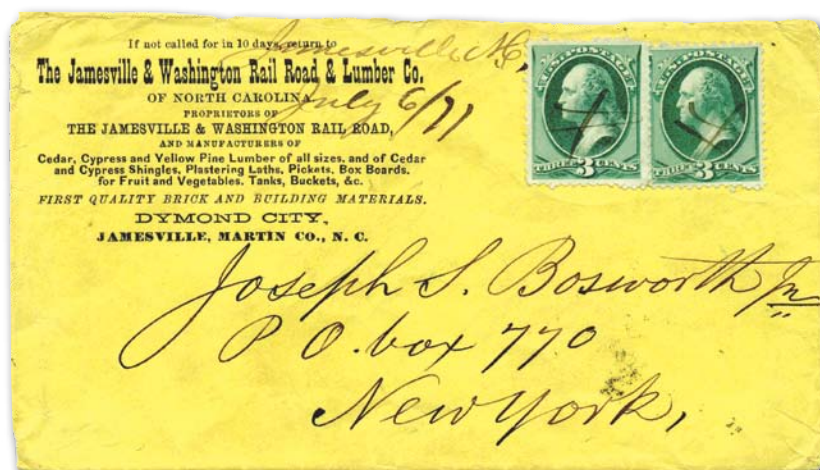 If not called for in 10 days, return to
The Jamesville & Washington Rail Road & Lumber Co.
OF NORTH CAROLINA,
PROPRIETORS OF
THE JAMESVILLE & WASHINGTON RAIL ROAD,
AND MANUFACTURERS OF
Cedar, Cypress and Yellow Pine Lumber of all sizes, and of Cedar
and Cypress Shingles, Plastering Laths, Pickets, Box Boards,
for Fruit and Vegetables. Tanks, Buckets, &c.
FIRST QUALITY BRICK AND BUILDING MATERIALS.
DYMOND CITY,
JAMESVILLE, MARTIN CO., N. C.
Jamesville NC,
July 6/71
U.S. POSTAGE
THREE 3 CENTS
U.S. POSTAGE
THREE 3 CENTS
Joseph S. Bosworth Jr
P O. box 770
New York,